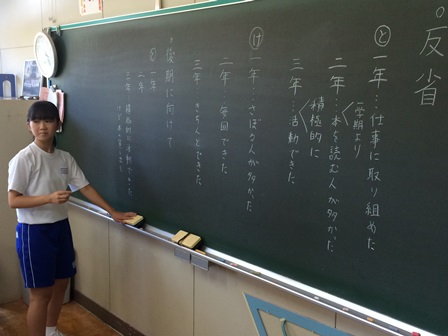 ○反省
と 一年…仕事に取り組めた
一学期より
二年…本を読む人が多かった
積極的に
三年…活動できた
け 一年…さぼる人が多かった
二年…毎回できた
三年…きちんとできた
○後期に向けて
と 一年
二年
三年 積極的に活動できた